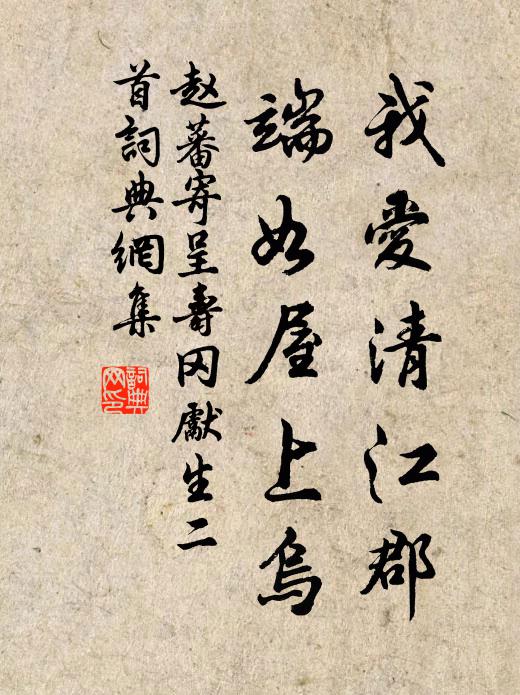 我愛清江郡
端如屋上烏
赵蕃寄呈壽冈獻生二
首詞典網集
詞典
网印